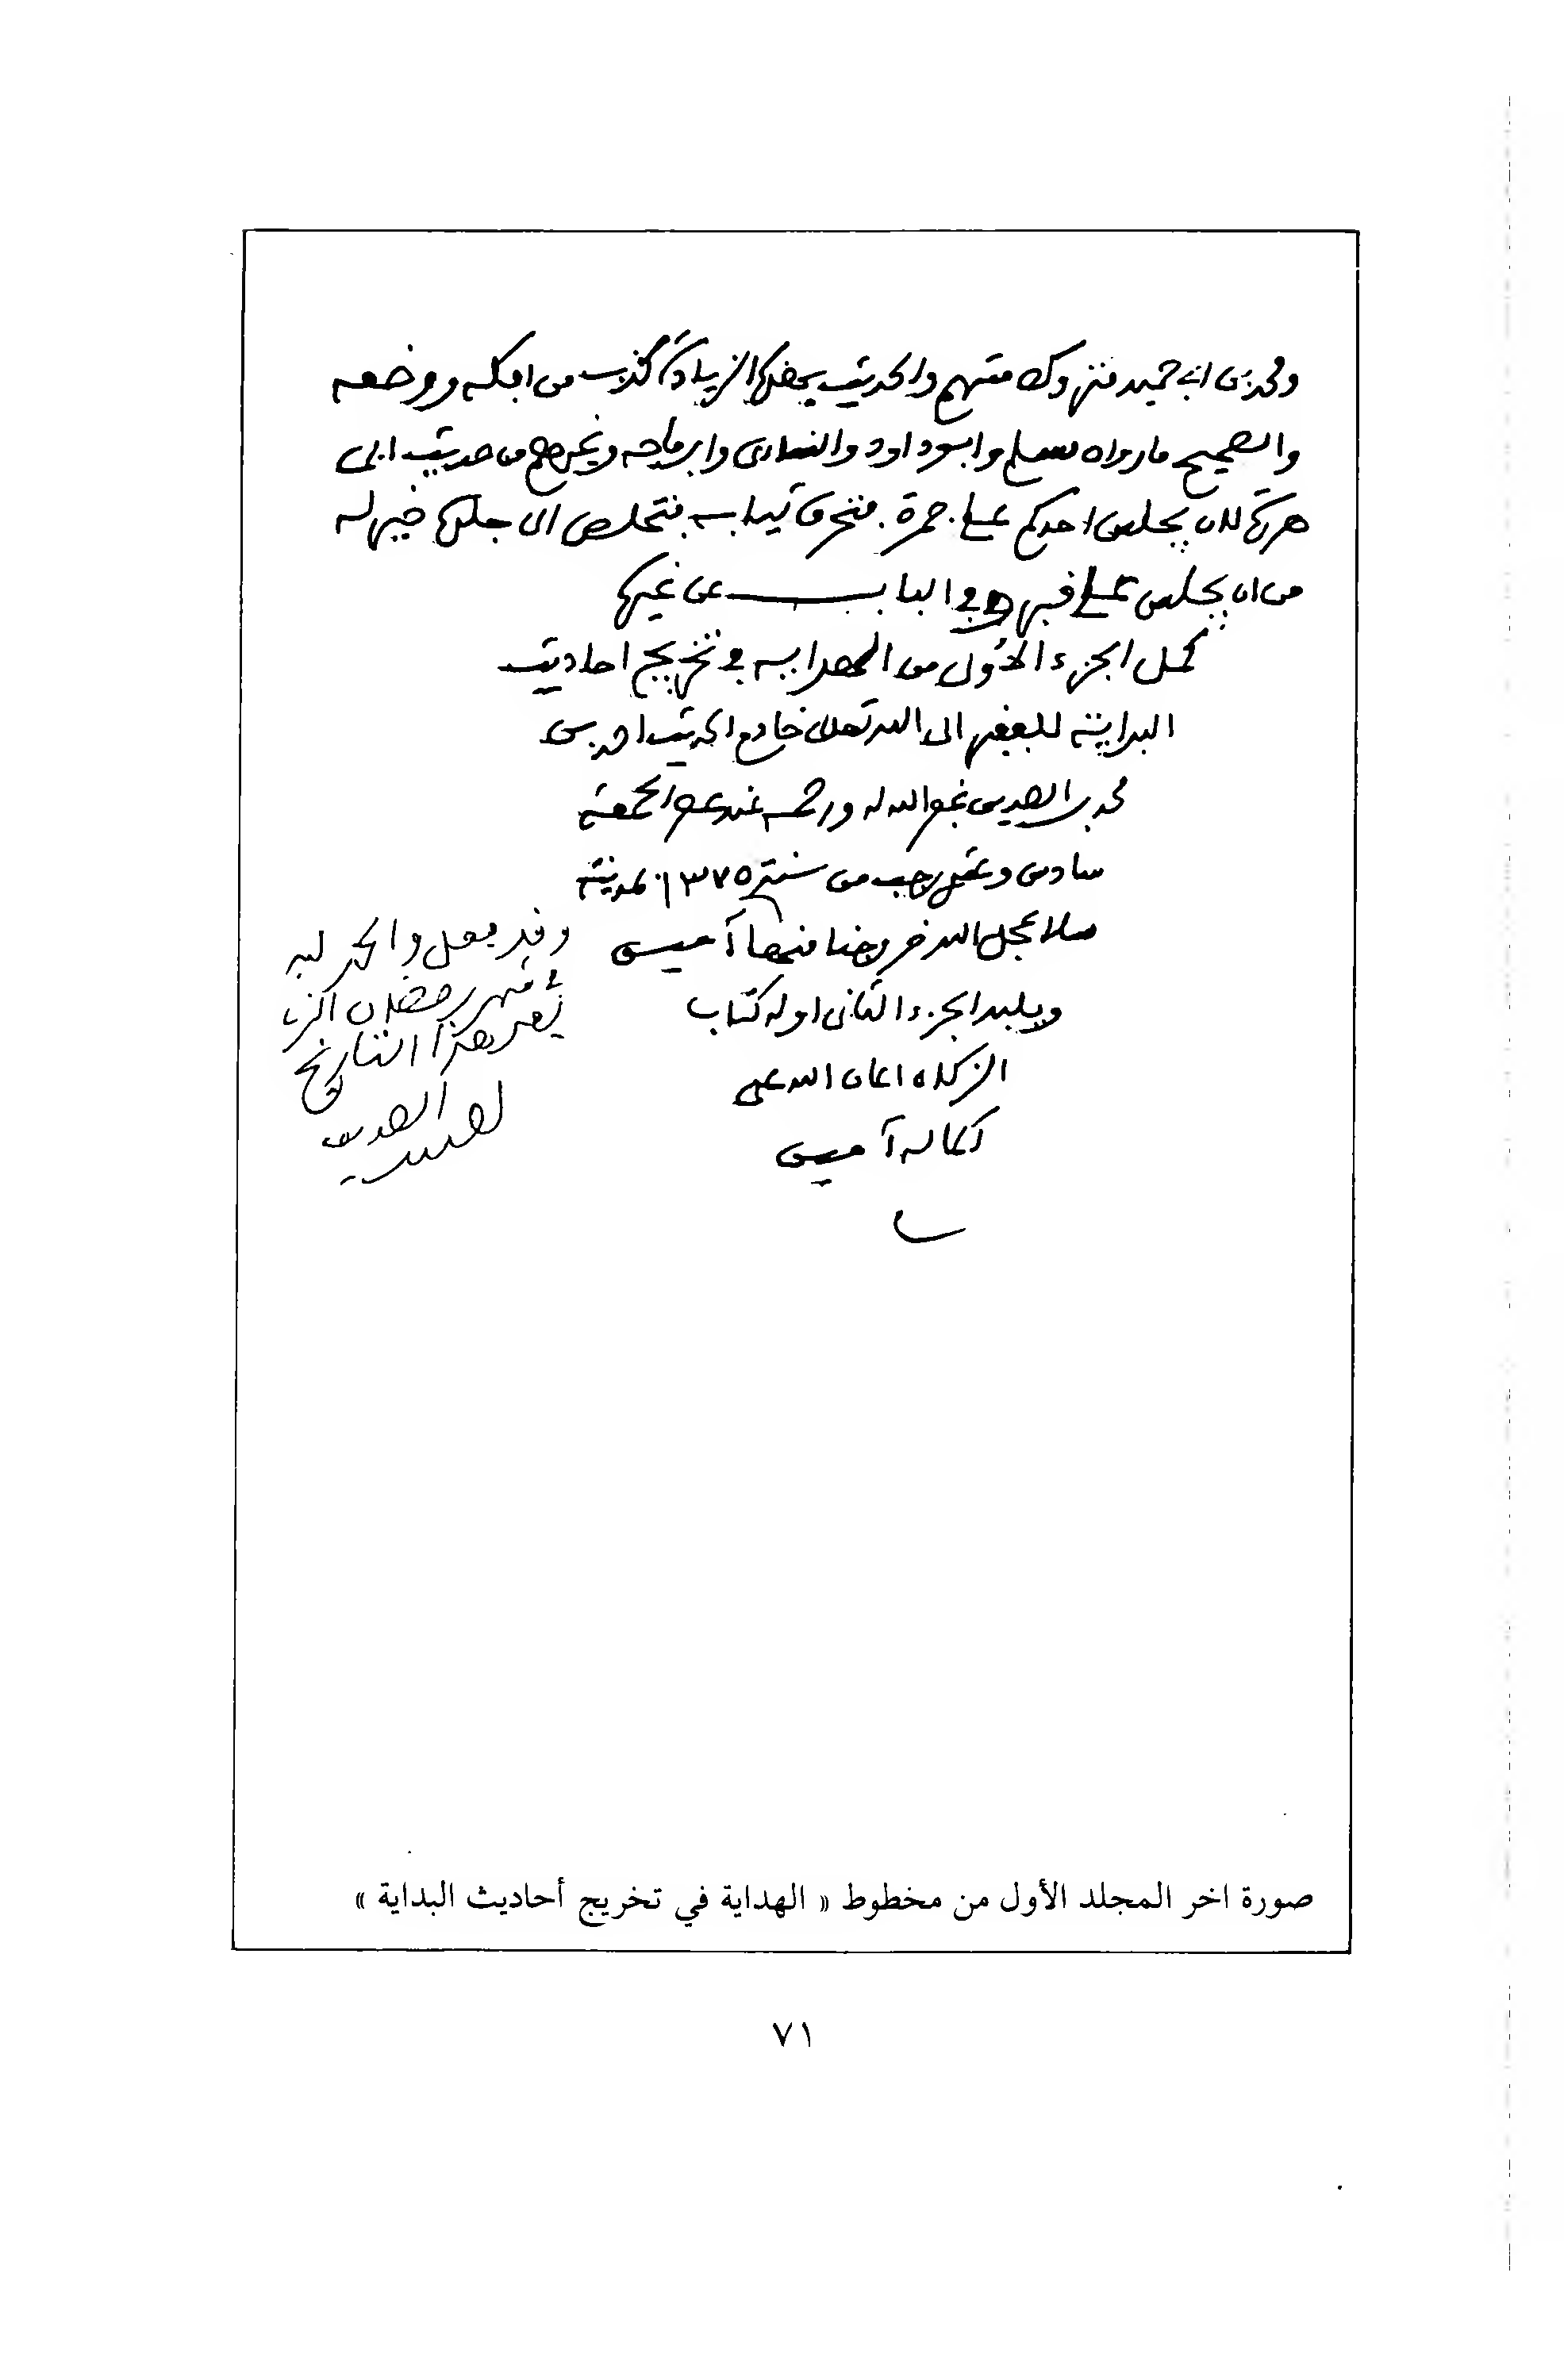 ومحمد بن أبي حميد متروك متهم والحديث بهذه الزيادة كذب من إفكه ووضعه
والصحيح ما رواه مسلم وابو داود والنسائى وابن ماجه وغيرهم من حديث ابى
هريرة لان يجلس احدكم على جمرة فتحرق ثيابه فتخلص الى جلده خير له
من ان يجلس على قبر وفي الباب عن غيره
كمل الجزء الأول من الهداية في تخريج احاديث
البداية للفقير الى الله تعالى خادم الحديث احمد بن
محمد بن الصديق غفر الله له ورحمه عند عصر الجمعة
سادس وعشرى رجب من سنة ١٣٧٥ بمدينة
سلا عجل الله خروجنا منها آمين
ويليه الجزء الثانى اوله كتاب
الزكاة اعان الله على
اكماله آمين
وقد فعل والحمد لله
في شهر رمضان الذى
بعد هذا التاريخ
صورة اخر المجلد الأول من مخطوط « الهداية في تخريج أحاديث البداية »
٧١